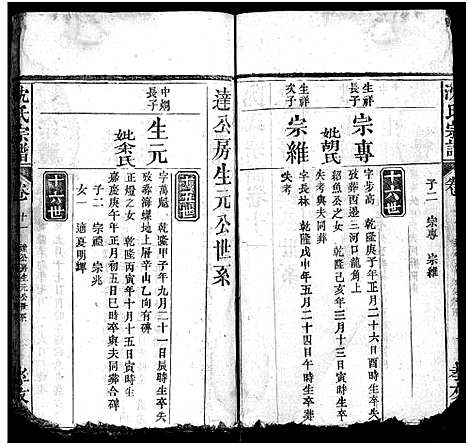 沈氏宗譜
卷
子二 宗專 宗維
十六世
生祥長子
宗專
字步高 乾隆庚子年正月二十六日酉時生卒失
考葬西邊三河口龍角上
妣胡氏
紹魚公之女 乾隆己亥年三月十三日寅時生卒
失考與夫同葬
生祥次子
宗維
字長林 乾隆戊申年五月二十四日午時生卒葬
失考
達公房生元公世系
十五世
中炯長子
生元
字萬魁 乾隆甲子年九月二十一日辰時生卒失
考葬海螺地上屠辛山乙向有碑
妣余氏
正燈之女 乾隆丙寅年十月十五日寅時生
嘉慶庚午年正月初五日巳時卒與夫同葬合碑
子二 宗禮 宗兆
女一 適夏明譯
十六世
沈氏宗譜
卷二十一 達公房生元公世系
孝友